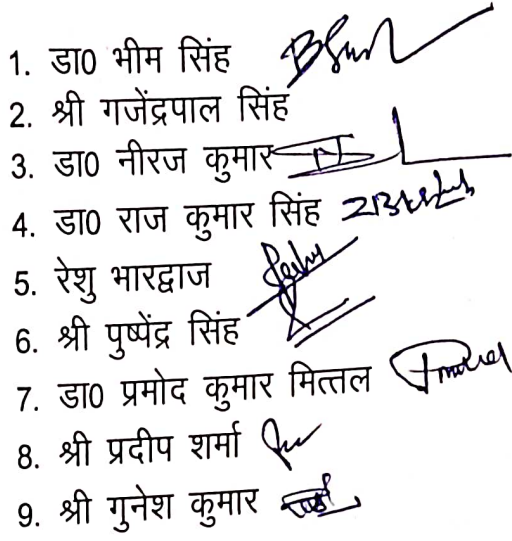 1. डा0 भीम सिंह
2. श्री गजेंद्रपाल सिंह
3. डा0 नीरज कुमार
4. डा0 राज कुमार सिंह
5. रेशु भारद्वाज
6. श्री पुष्पेंद्र सिंह
7. डा0 प्रमोद कुमार मित्तल
8. श्री प्रदीप शर्मा
9. श्री गुनेश कुमार